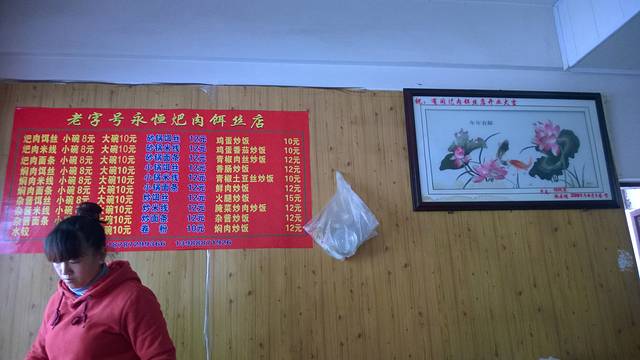 老字号永恒𤆵肉饵丝店
𤆵肉饵丝 小碗8元 大碗10元 砂锅饵丝 12元 鸡蛋炒饭 10元
𤆵肉米线 小碗8元 大碗10元 砂锅米线 12元 鸡蛋番茄炒饭 10元
𤆵肉面条 小碗8元 大碗10元 砂锅面条 12元 青椒肉丝炒饭 12元
焖肉饵丝 小碗8元 大碗10元 小锅饵丝 12元 香肠炒饭 12元
焖肉米线 小碗8元 大碗10元 小锅米线 12元 青椒土豆丝炒饭 10元
焖肉面条 小碗8元 大碗10元 小锅面条 12元 鲜肉炒饭 12元
杂酱饵丝 小碗8元 大碗10元 炒饵丝 12元 火腿炒饭 15元
杂酱米线 大碗10元 炒米线 12元 腌菜炒肉炒饭 12元
杂酱面条 大碗10元 炒面条 12元 杂酱炒饭 12元
水饺 大碗10元 卷粉 10元 焖肉炒饭 12元
祝：有闲𤆵肉饵丝店开业大吉
年年有餘